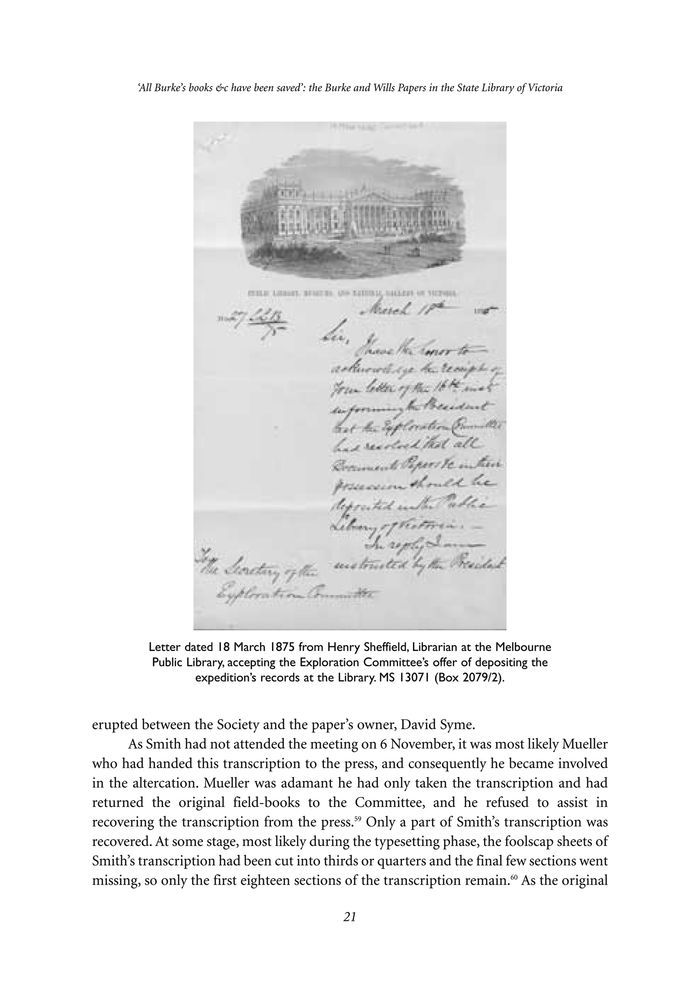 ‘All Burke’s books &c have been saved’: the Burke and Wills Papers in the State Library of Victoria
PUBLIC LIBRARY, MUSEUMS, AND NATIONAL GALLERY OF VICTORIA.
March 18th 1875
Sir,
I have the honor to
acknowledge the receipt of
your letter of the 16th inst
informing the President
that the Exploration Committee
had resolved that all
Documents Papers &c in their
possession should be
deposited in the Public
Library of Victoria. —
In reply I am
instructed by the President
To
The Secretary of the
Exploration Committee
Letter dated 18 March 1875 from Henry Sheffield, Librarian at the Melbourne
Public Library, accepting the Exploration Committee’s offer of depositing the
expedition’s records at the Library. MS 13071 (Box 2079/2).
erupted between the Society and the paper’s owner, David Syme.
As Smith had not attended the meeting on 6 November, it was most likely Mueller
who had handed this transcription to the press, and consequently he became involved
in the altercation. Mueller was adamant he had only taken the transcription and had
returned the original field-books to the Committee, and he refused to assist in
recovering the transcription from the press.59 Only a part of Smith’s transcription was
recovered. At some stage, most likely during the typesetting phase, the foolscap sheets of
Smith’s transcription had been cut into thirds or quarters and the final few sections went
missing, so only the first eighteen sections of the transcription remain.60 As the original
21